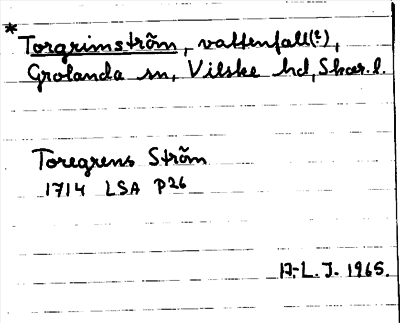 * Torgrimström, vattenfall(?),
Grolanda sn, Vilske hd, Skar. l.
Toregrens Ström
1714 LSA P26
A.-L. J. 1965.